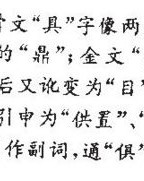 文“具”字像两
的“鼎”；金文“
后又讹变为“目”
引申为“供置”、“
作副词，通“俱”